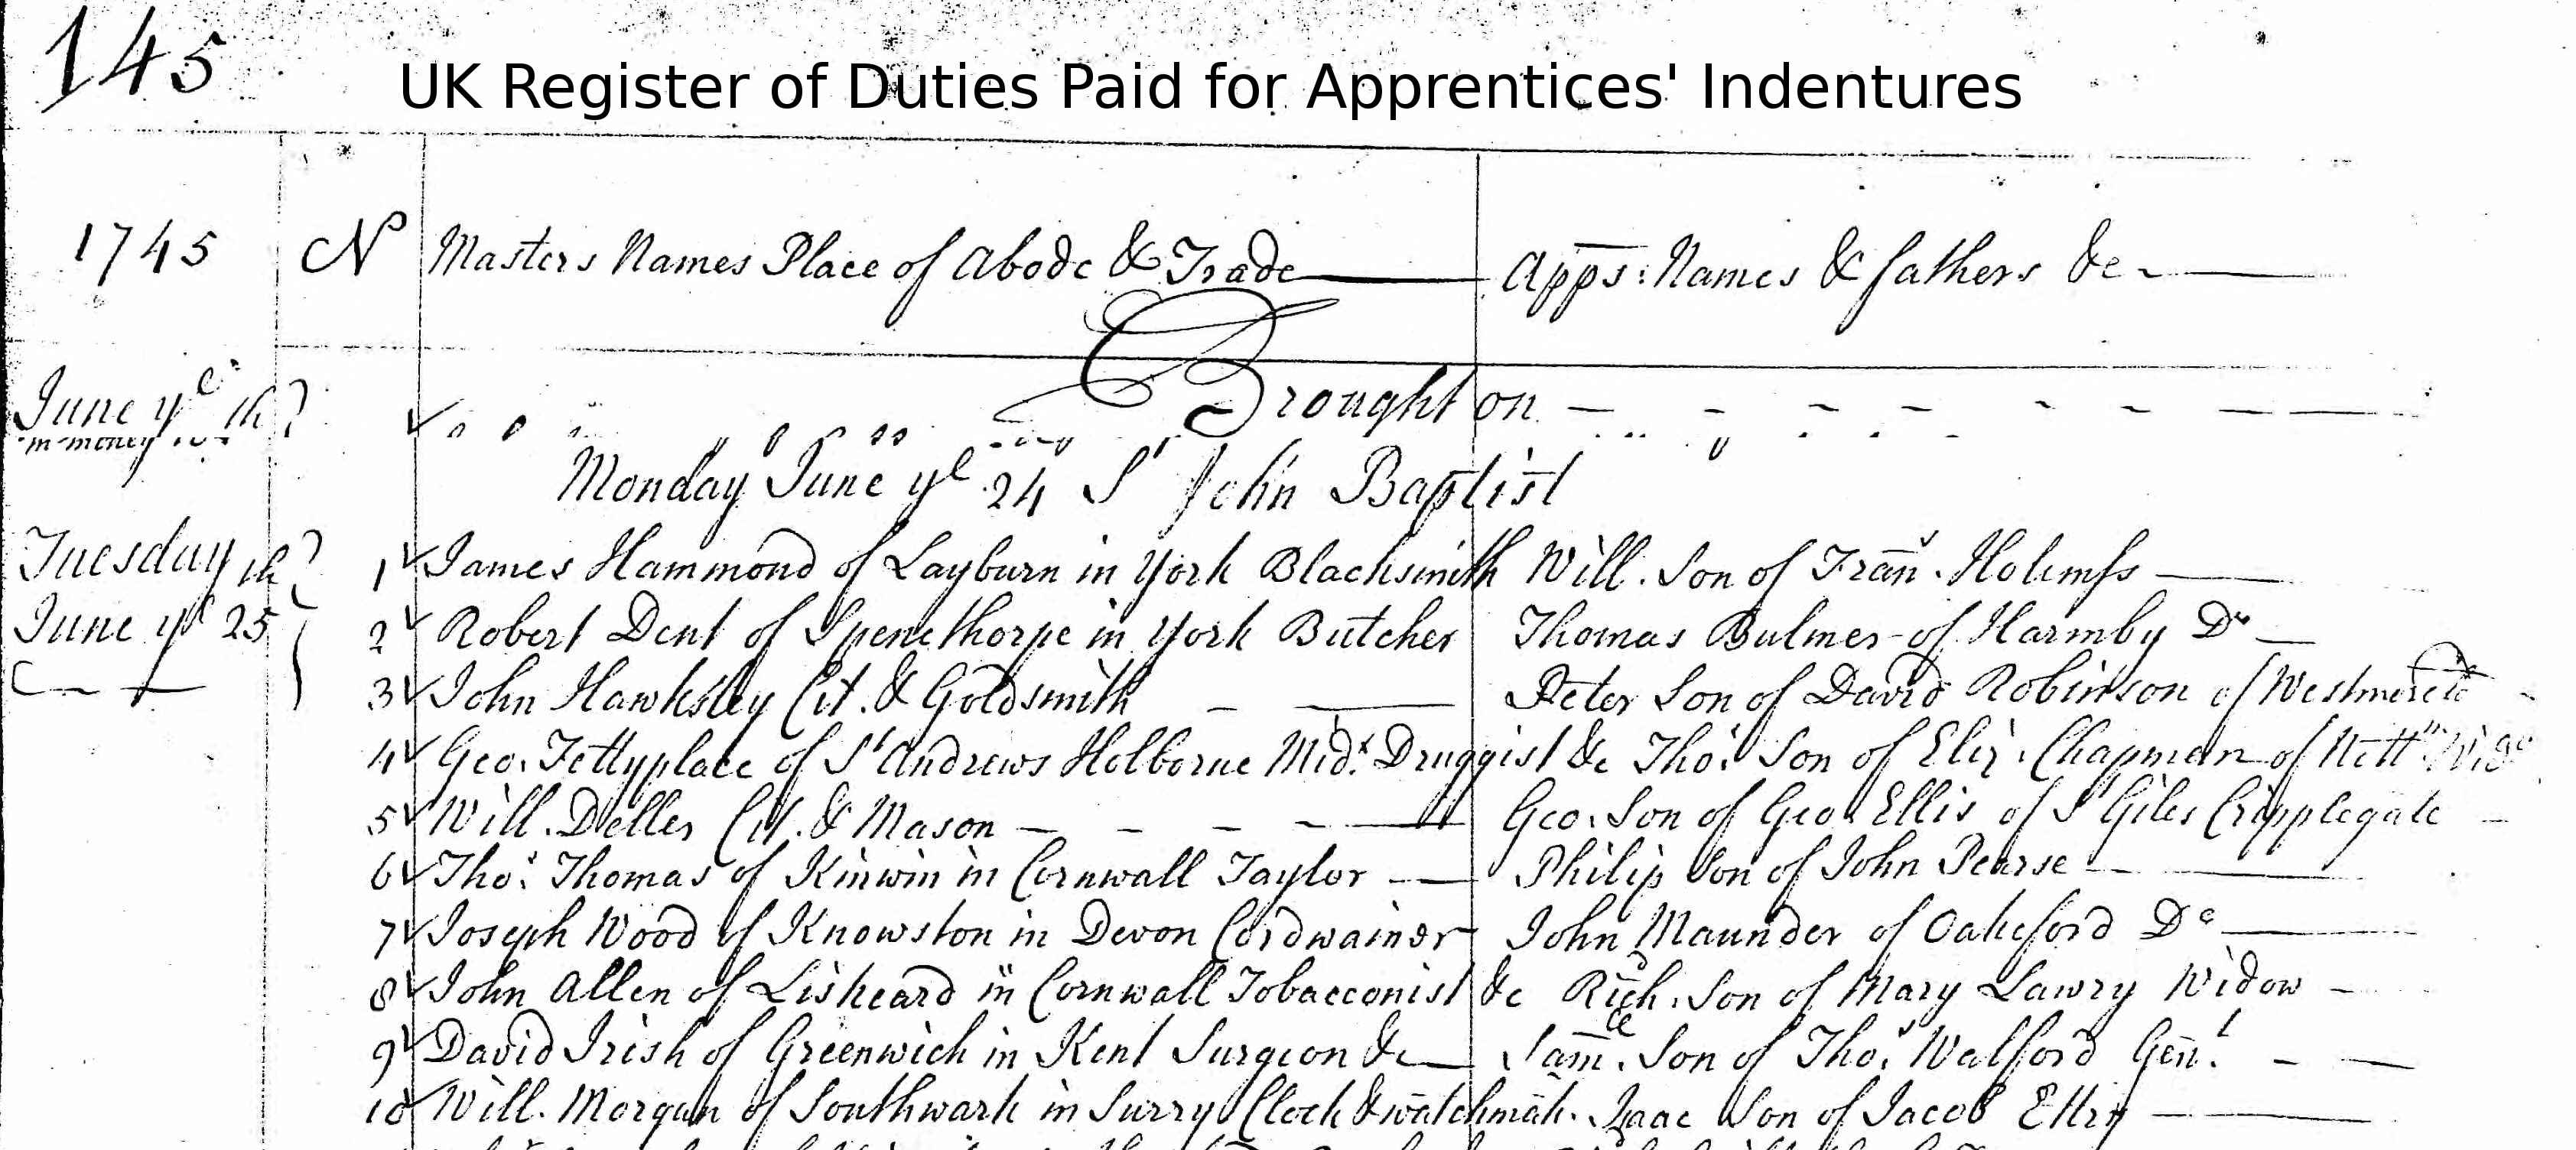 145
UK Register of Duties Paid for Apprentices' Indentures
1745 No Masters Names Place of Abode & Trade Apps: Names & fathers &c
June ye
Brought on
in money
Monday June ye 24 St John Baptist
Tuesday
June ye 25
1 James Hammond of Layburn in York Blacksmith Will. Son of Fran.s Holmss
2 Robert Dent of Spenethorpe in York Butcher Thomas Bulmer of Harmby Do
3 John Hawksley Cit. & Goldsmith Peter Son of David Robinson of
4 Geo. Fettyplace of St Andrews Holborne Midx. Druggist &c Thos. Son of Eliz. Chapman of
5 Will. Deller Cit. & Mason Geo. Son of Geo. Ellis of St Giles Cripplegate
6 Thos. Thomas of Kinwin in Cornwall Taylor Philip Son of John Pearse
7 Joseph Wood of Knowston in Devon Cordwainer John Maunder of Oakeford Do
8 John Allen of Liskeard in Cornwall Tobacconist &c Rich. Son of Mary Lawry Widow
9 David Irish of Greenwich in Kent Surgeon &c Sam. Son of Thos. Walford Gent.
10 Will. Morgan of Southwark in Surry Clock & watchmak. Isaac Son of Jacob